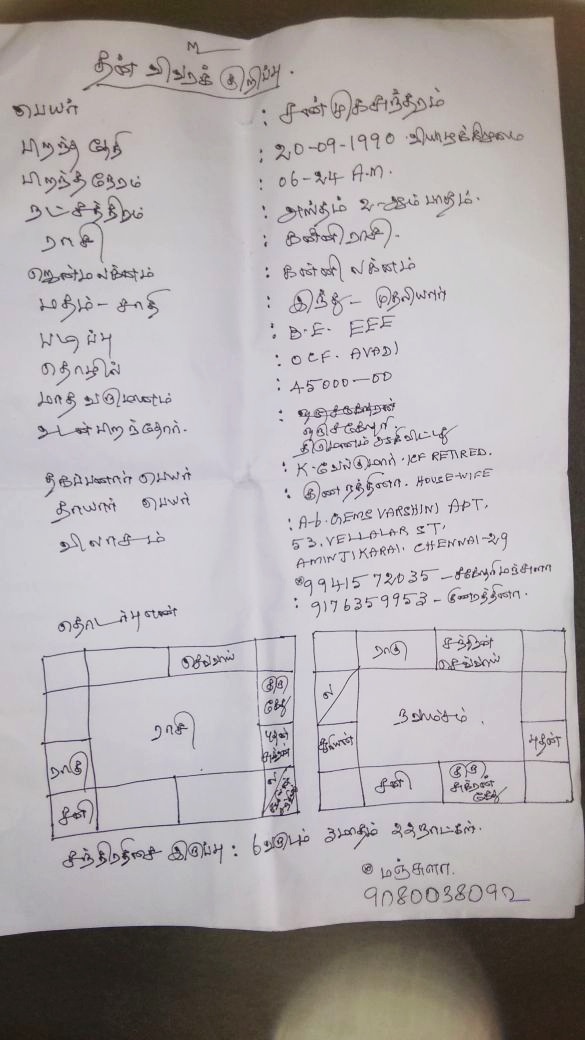 M
தன் விவரக் குறிப்பு.
பெயர் : சண்முகசுந்தரம்
பிறந்த தேதி : 20-09-1990 வியாழக்கிழமை
பிறந்த நேரம் : 06-24 A.M.
நட்சத்திரம் : அஸ்தம் 2-ஆம் பாதம்.
ராசி : கன்னி ராசி.
ஜென்ம லக்னம் : கன்னி லக்னம்
மதம் - சாதி : இந்து - முதலியார்
படிப்பு : B.E. EEE
தொழில் : OCF. AVADI
மாத வருமானம் : 45000-00
உடன் பிறந்தோர். : ஒரு சகோதரி திருமணம் ஆகிவிட்டது
தகப்பனார் பெயர் : K. வேல்குமார். ICF RETIRED.
தாயார் பெயர் : குணரத்தினா. HOUSE-WIFE
விலாசம் : A-6. GEMS VARSHINI APT,
53, VELLALAR ST,
AMINJIKARAI, CHENNAI-29
9941572035 - சகோதரி மஞ்சுளா
தொடர்பு எண் : 9176359953 - குணரத்தினா.
செவ்வாய்
குரு கேது
ராசி
புதன் சுக்ரன்
ராகு
சனி
ல
ராகு
சந்திரன் செவ்வாய்
ல
நவாம்சம்.
சூரியன்
புதன்
சனி
குரு சுக்ரன் கேது
சந்திர திசை இருப்பு : 6 வருடம் 3 மாதம் 22 நாட்கள்.
மஞ்சுளா.
9080038092